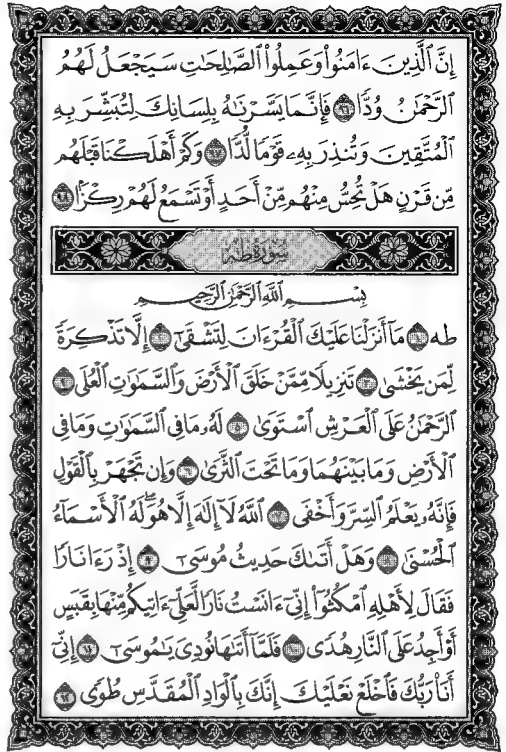 إِنَّ ٱلَّذِينَ ءَامَنُواْ وَعَمِلُواْ ٱلصَّٰلِحَٰتِ سَيَجْعَلُ لَهُمُ
ٱلرَّحْمَٰنُ وُدًّا ٩٦ فَإِنَّمَا يَسَّرْنَٰهُ بِلِسَانِكَ لِتُبَشِّرَ بِهِ
ٱلْمُتَّقِينَ وَتُنذِرَ بِهِۦ قَوْمًا لُّدًّا ٩٧ وَكَمْ أَهْلَكْنَا قَبْلَهُم
مِّن قَرْنٍ هَلْ تُحِسُّ مِنْهُم مِّنْ أَحَدٍ أَوْ تَسْمَعُ لَهُمْ رِكْزًۢا ٩٨
سُورَةُ طه
بِسْمِ ٱللَّهِ ٱلرَّحْمَٰنِ ٱلرَّحِيمِ
طه ١ مَآ أَنزَلْنَا عَلَيْكَ ٱلْقُرْءَانَ لِتَشْقَىٰٓ ٢ إِلَّا تَذْكِرَةً
لِّمَن يَخْشَىٰ ٣ تَنزِيلًا مِّمَّنْ خَلَقَ ٱلْأَرْضَ وَٱلسَّمَٰوَٰتِ ٱلْعُلَى ٤
ٱلرَّحْمَٰنُ عَلَى ٱلْعَرْشِ ٱسْتَوَىٰ ٥ لَهُۥ مَا فِى ٱلسَّمَٰوَٰتِ وَمَا فِى
ٱلْأَرْضِ وَمَا بَيْنَهُمَا وَمَا تَحْتَ ٱلثَّرَىٰ ٦ وَإِن تَجْهَرْ بِٱلْقَوْلِ
فَإِنَّهُۥ يَعْلَمُ ٱلسِّرَّ وَأَخْفَى ٧ ٱللَّهُ لَآ إِلَٰهَ إِلَّا هُوَۖ لَهُ ٱلْأَسْمَآءُ
ٱلْحُسْنَىٰ ٨ وَهَلْ أَتَىٰكَ حَدِيثُ مُوسَىٰٓ ٩ إِذْ رَءَا نَارًا
فَقَالَ لِأَهْلِهِ ٱمْكُثُوٓاْ إِنِّىٓ ءَانَسْتُ نَارًا لَّعَلِّىٓ ءَاتِيكُم مِّنْهَا بِقَبَسٍ
أَوْ أَجِدُ عَلَى ٱلنَّارِ هُدًى ١٠ فَلَمَّآ أَتَىٰهَا نُودِىَ يَٰمُوسَىٰٓ ١١ إِنِّىٓ
أَنَا۠ رَبُّكَ فَٱخْلَعْ نَعْلَيْكَ إِنَّكَ بِٱلْوَادِ ٱلْمُقَدَّسِ طُوًى ١٢